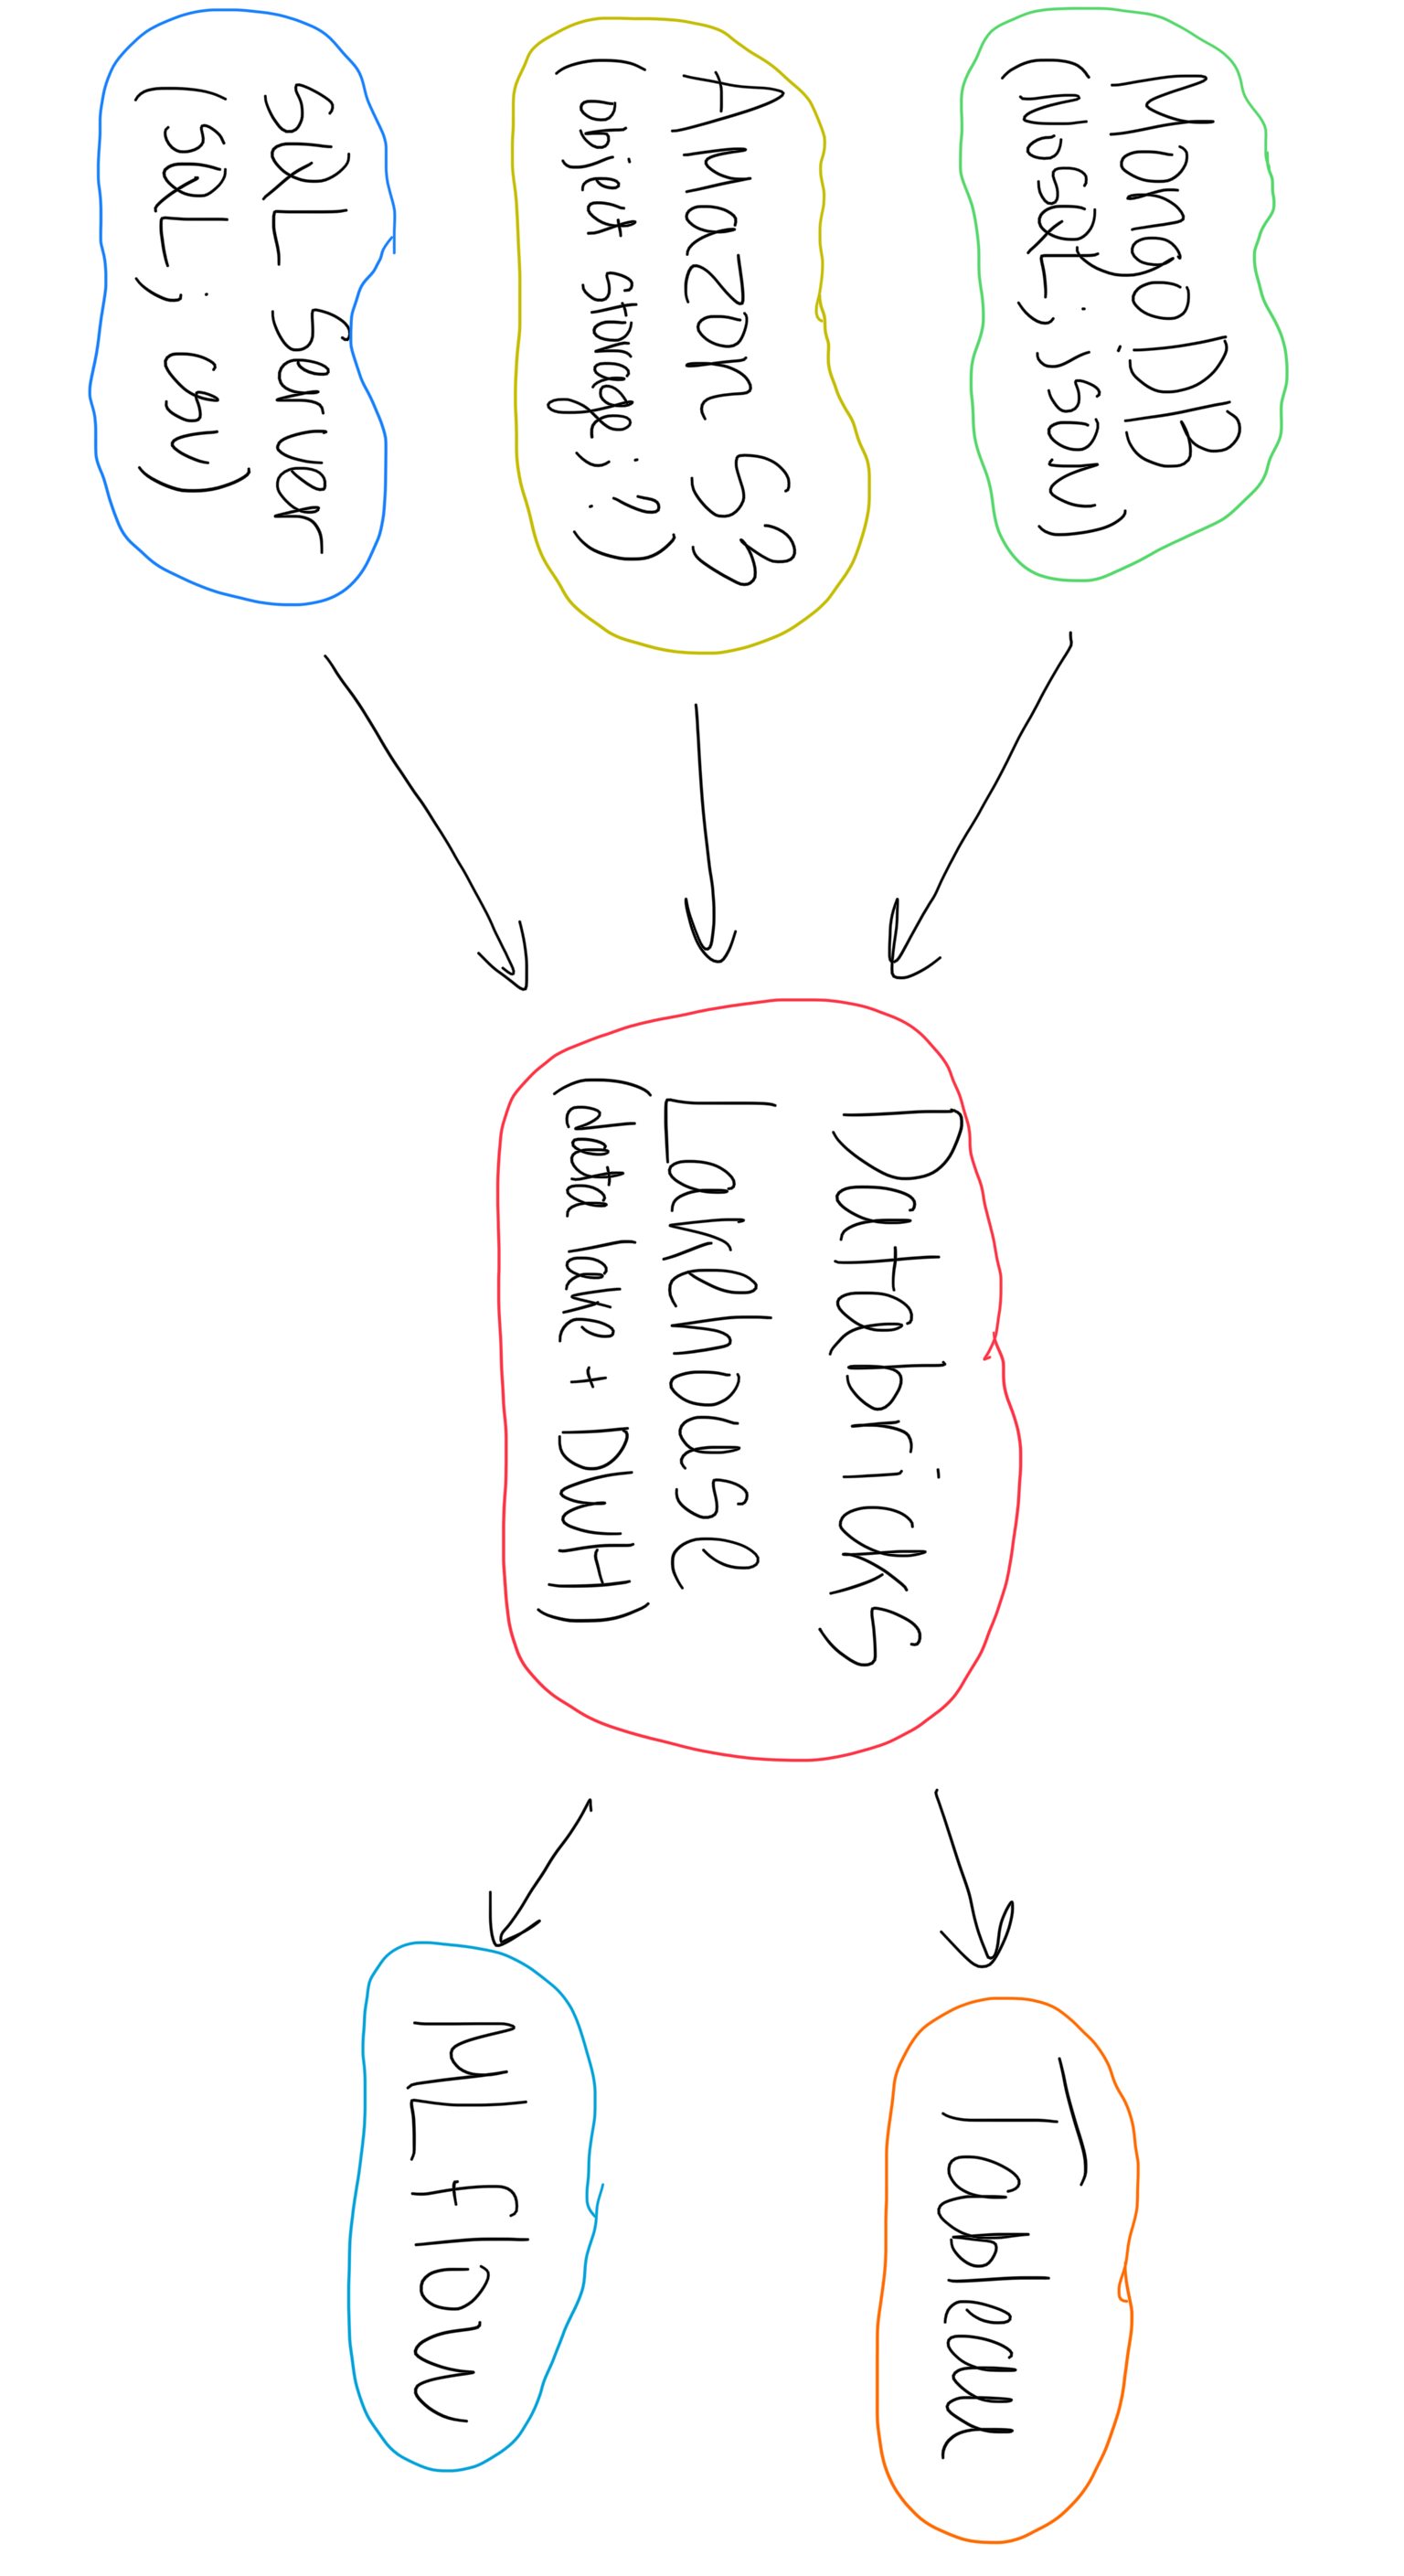 MongoDB
(NoSQL; JSON)
Amazon S3
(object storage; ?)
SQL Server
(SQL; csv)
Databricks
Lakehouse
(data lake + DWH)
Tableau
MLflow